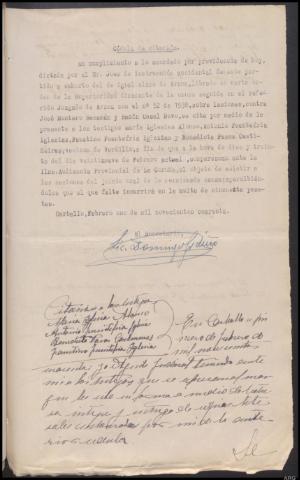 Cédula de citación.
En cumplimiento a lo acordado por providencia de hoy,
dictada por el Sr. Juez de instrucción accidental de este par-
tido y exhorto del de igual clase de Arzua, librado de carta or-
den de la Superioridad dimanante de la causa seguida en el referido
Juzgado de Arzua con el nº 52 de 1938, sobre lesiones, contra
José Montero Bascoy y Ramón Casal Novo, se cita por medio de la
presente a los testigos María Iglesias Alonso, Antonio Fuentefría
Iglesias, Faustino Fuentefría Iglesias y Benedicto Pazos Casti-
ñeiras, vecinos de para que a la hora de diez y treinta
del día veintinueve de Febrero actual, comparezcan ante la
Ilma. Audiencia Provincial de La Coruña, al objeto de asistir a
las sesiones del juicio oral de la mencionada causa; apercibién-
doles que el que falte incurrirá en la multa de cincuenta pe-
setas.
Carballo, Febrero uno de mil novecientos cuarenta.
El Secretario,
Lic. Domingo
Citación a los testigos
María Iglesias Alonso
Antonio Fuentefría Iglesias
Benedicto Pazos
Faustino Fuentefría Iglesias
En Carballo a pri-
mero de febrero de
mil novecientos
cuarenta; yo Agente judicial teniendo ante
mi a los testigos que se expresan al mar-
gen les cité en forma a medio de lectura
íntegra y entrega de
por mitad la ante-
rior cédula